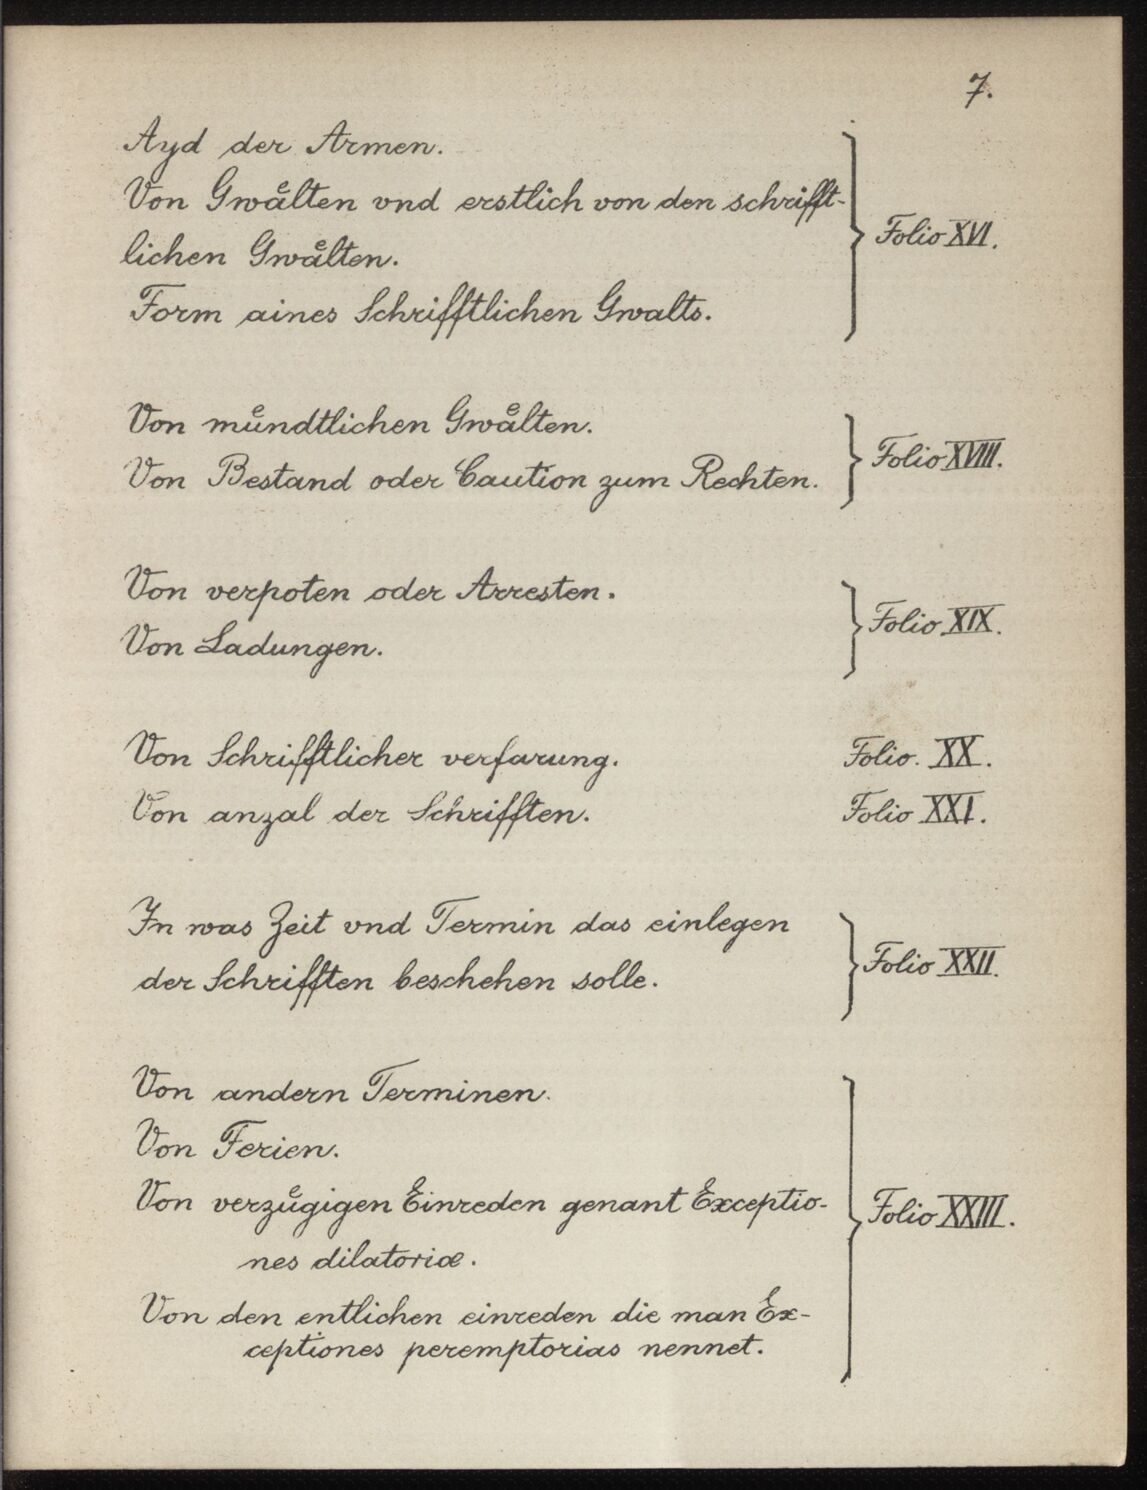 7.
Ayd der Armen.
Von Gwaͤlten vnd erstlich von den schrifft-
lichen Gwaͤlten.
Folio XVI.
Form aines Schrifftlichen Gwalts.
Von muͤndtlichen Gwaͤlten.
Von Bestand oder Caution zum Rechten.
Folio XVIII.
Von verpoten oder Arresten.
Von Ladungen.
Folio XIX.
Von Schrifftlicher verfarung. Folio. XX.
Von anzal der Schrifften. Folio XXI.
In was Zeit vnd Termin das einlegen
der Schrifften beschehen solle.
Folio XXII.
Von andern Terminen.
Von Ferien.
Von verzuͤgigen Einreden genant Exceptio-
nes dilatoriæ.
Folio XXIII.
Von den entlichen einreden die man Ex-
ceptiones peremptorias nennet.